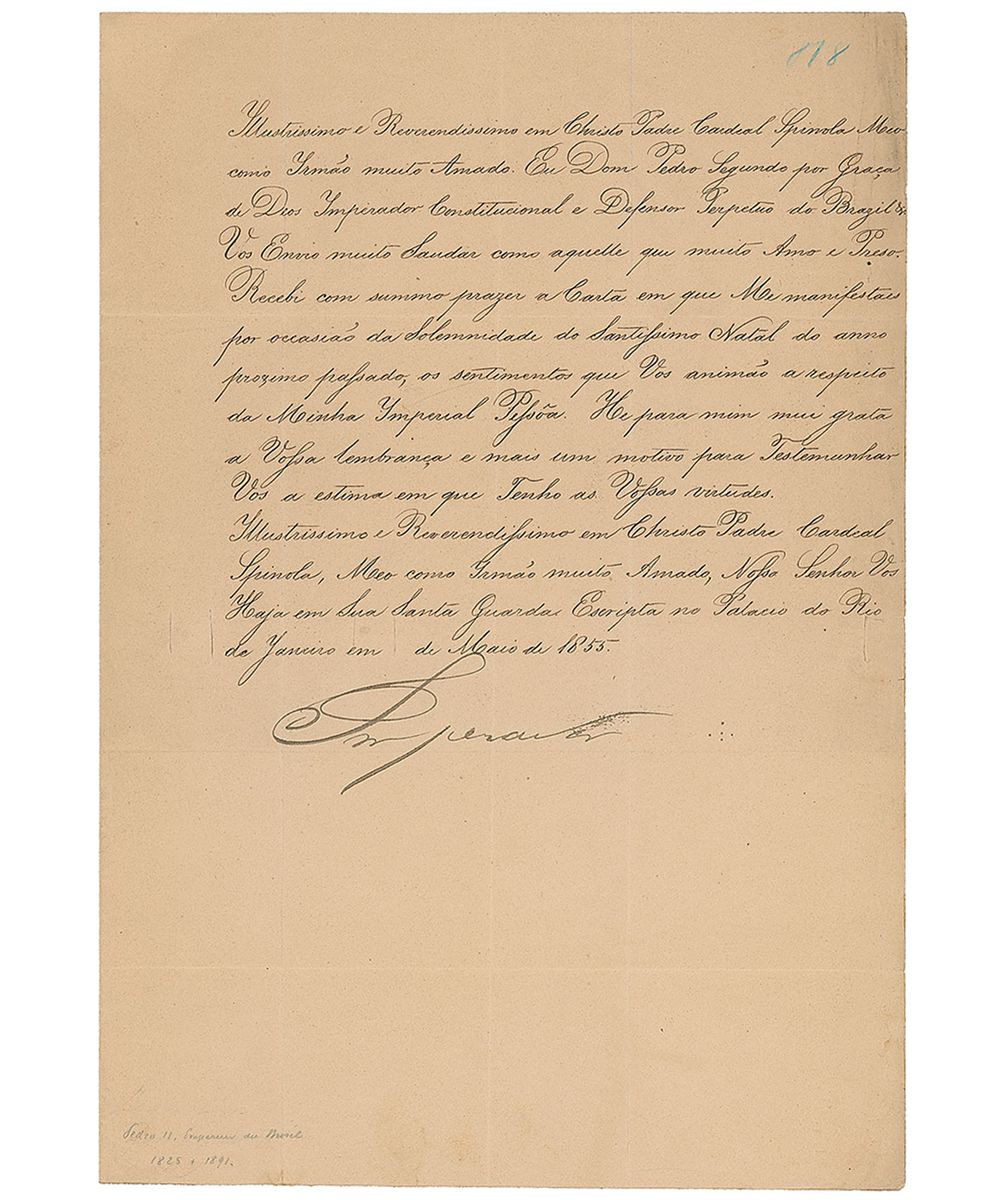 818
Illustrissimo e Reverendissimo em Christo Padre Cardeal Spinola Meo
como Irmão muito Amado. Eu Dom Pedro Segundo por Graça
de Deos Imperador Constitucional e Defensor Perpetuo do Brazil &.
Vos Envio muito Saudar como aquelle que muito Amo e Preso.
Recebi com summo prazer a Carta em que Me manifestaes
por occasião da Solemnidade do Santissimo Natal do anno
proximo passado, os sentimentos que Vos animão a respeito
da Minha Imperial Pessôa. He para mim mui grata
a Vossa lembrança e mais um motivo para Testemunhar
Vos a estima em que Tenho as Vossas virtudes.
Illustrissimo e Reverendissimo em Christo Padre Cardeal
Spinola, Meo como Irmão muito Amado, Nosso Senhor Vos
Haja em Sua Santa Guarda. Escripta no Palacio do Rio
de Janeiro em de Maio de 1855.
Imperador
Pedro II, Empereur du Brésil
1825 + 1891.